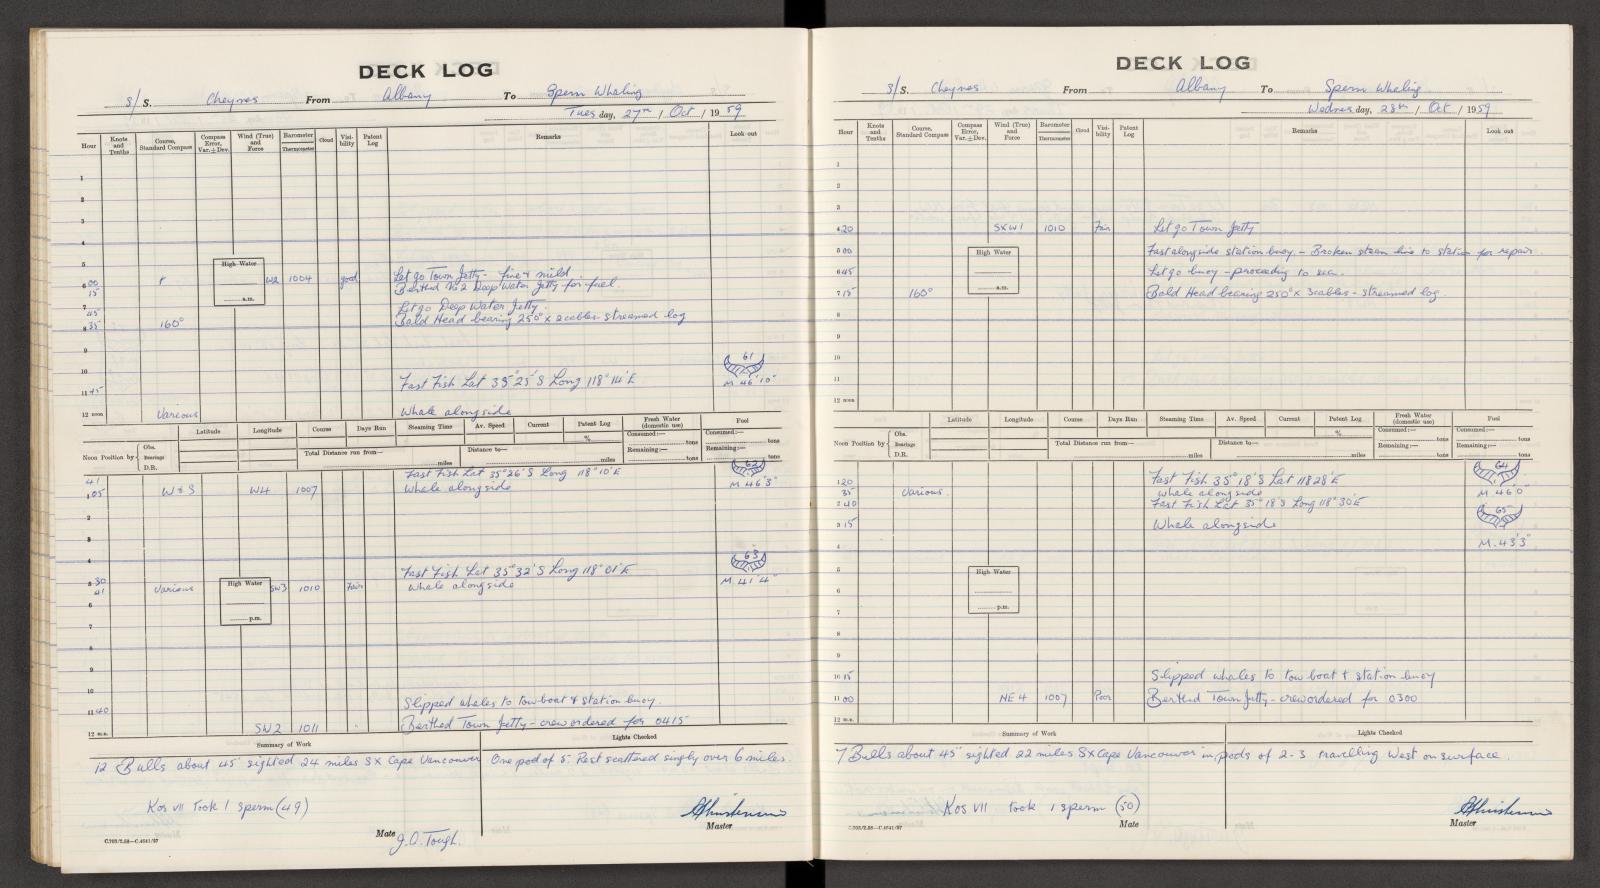 DECK LOG
S/ S. Cheynes From Albany To Sperm Whaling
Tues day, 27th / Oct / 19 59
Hour
Knots and Tenths
Course, Standard Compass
Compass Error, Var. ± Dev.
Wind (True) and Force
Barometer
Thermometer
Cloud
Visibility
Patent Log
Remarks
Look out
1
2
3
4
5
High Water
a.m.
6 00 W2 1004 good Let go Town Jetty - fine & mild
15 Berthed No 2 Deep Water Jetty for fuel.
7 45 Let go Deep Water Jetty
8 35 160° Bald Head bearing 250° x 2 cables - streamed log
9
10 61
11 45 Fast Fish Lat 35° 25' S Long 118° 14' E M 46' 10"
12 noon Various Whale alongside
Latitude Longitude Course Days Run Steaming Time Av. Speed Current Patent Log % Fresh Water (domestic use) Fuel
Consumed:— tons Consumed:— tons
Noon Position by Obs. Bearings D.R. Total Distance run from— miles Distance to— miles Remaining:— tons Remaining:— tons
41 Fast Fish Lat 35° 26' S Long 118° 10' E 62
1 05 W & S W4 1007 Whale alongside M 46' 3"
2
3
4 63
5 30 Fast Fish Lat 35° 32' S Long 118° 01' E
41 Various High Water SW3 1010 Fair Whale alongside M. 41' 4"
6
p.m.
7
8
9
10 Slipped whales to tow boat & station buoy.
11 40
12 m.n. SW 2 1011 Berthed Town Jetty - crew ordered for 0415
Summary of Work Lights Checked
12 Bulls about 45' sighted 24 miles S x Cape Vancouver One pod of 5. Rest scattered singly over 6 miles.
Kos VII took 1 sperm (49)
Mate J.O. Tough. Master
C.703/2.58—C.4541/57
DECK LOG
S/ S. Cheynes From Albany To Sperm Whaling
Wednes day, 28th / Oct / 19 59
Hour
Knots and Tenths
Course, Standard Compass
Compass Error, Var. ± Dev.
Wind (True) and Force
Barometer
Thermometer
Cloud
Visibility
Patent Log
Remarks
Look out
1
2
3
4 20 SXW1 1010 Fair Let go Town Jetty
5 00 High Water Fast alongside station buoy. - Broken steam line to station for repair
6 45 Let go buoy - proceeding to sea.
a.m.
7 15 160° Bald Head bearing 250° x 3 cables - streamed log
8
9
10
11
12 noon
Latitude Longitude Course Days Run Steaming Time Av. Speed Current Patent Log % Fresh Water (domestic use) Fuel
Consumed:— tons Consumed:— tons
Noon Position by Obs. Bearings D.R. Total Distance run from— miles Distance to— miles Remaining:— tons Remaining:— tons
1 20 Fast Fish 35° 18' S Lat 118 28' E 64
35 Various. Whale alongside M 46' 0"
2 40 Fast Fish Lat 35° 18' S Long 118° 30' E 65
3 15 Whale alongside
4 M. 43' 3"
5 High Water
6
7 p.m.
8
9
10 15 Slipped whales to tow boat & station buoy
11 00 NE 4 1007 Poor Berthed Town Jetty - crew ordered for 0300
12 m.n.
Summary of Work Lights Checked
7 Bulls about 45' sighted 22 miles S x Cape Vancouver in pods of 2-3 travelling West on surface.
Kos VII took 1 sperm (50)
Mate Master
C.703/2.58—C.4541/57